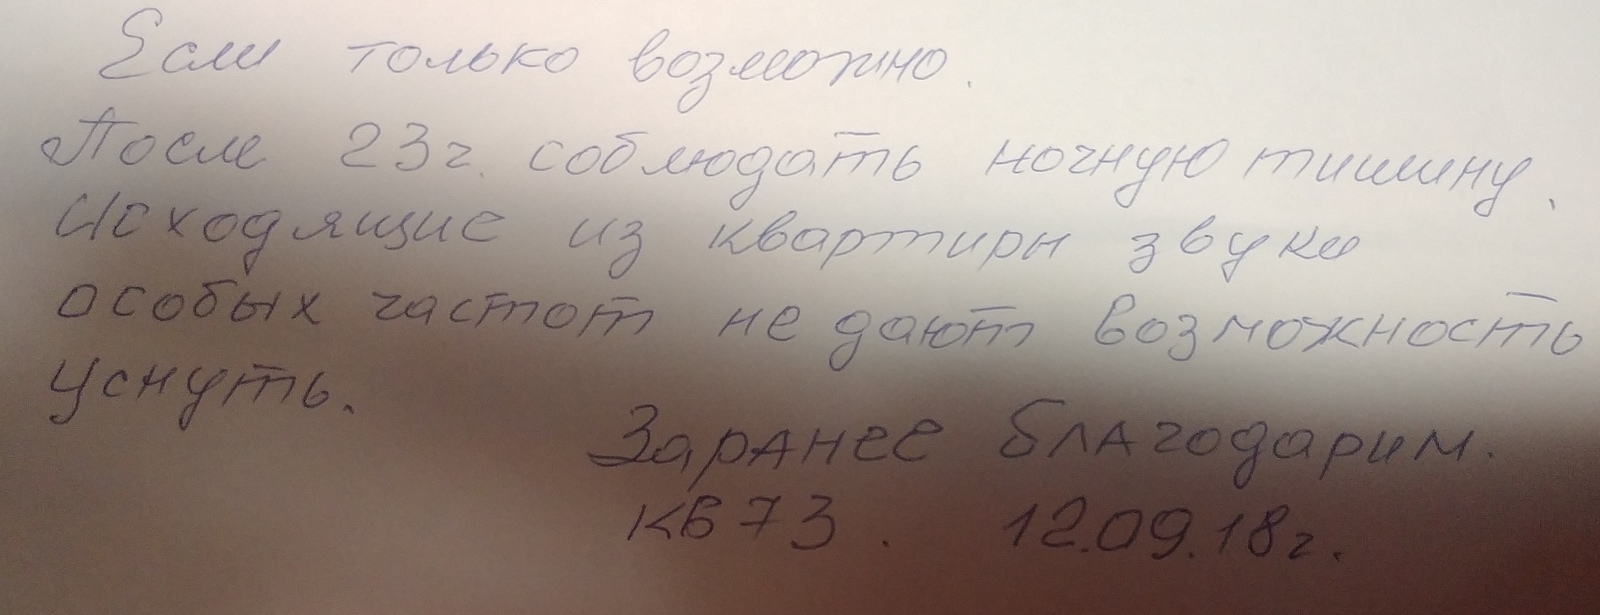 Если только возможно.
После 23 г. соблюдать ночную тишину.
Исходящие из квартиры звуки
особых частот не дают возможность
уснуть.
Заранее благодарим.
кв 73. 12.09.18 г.